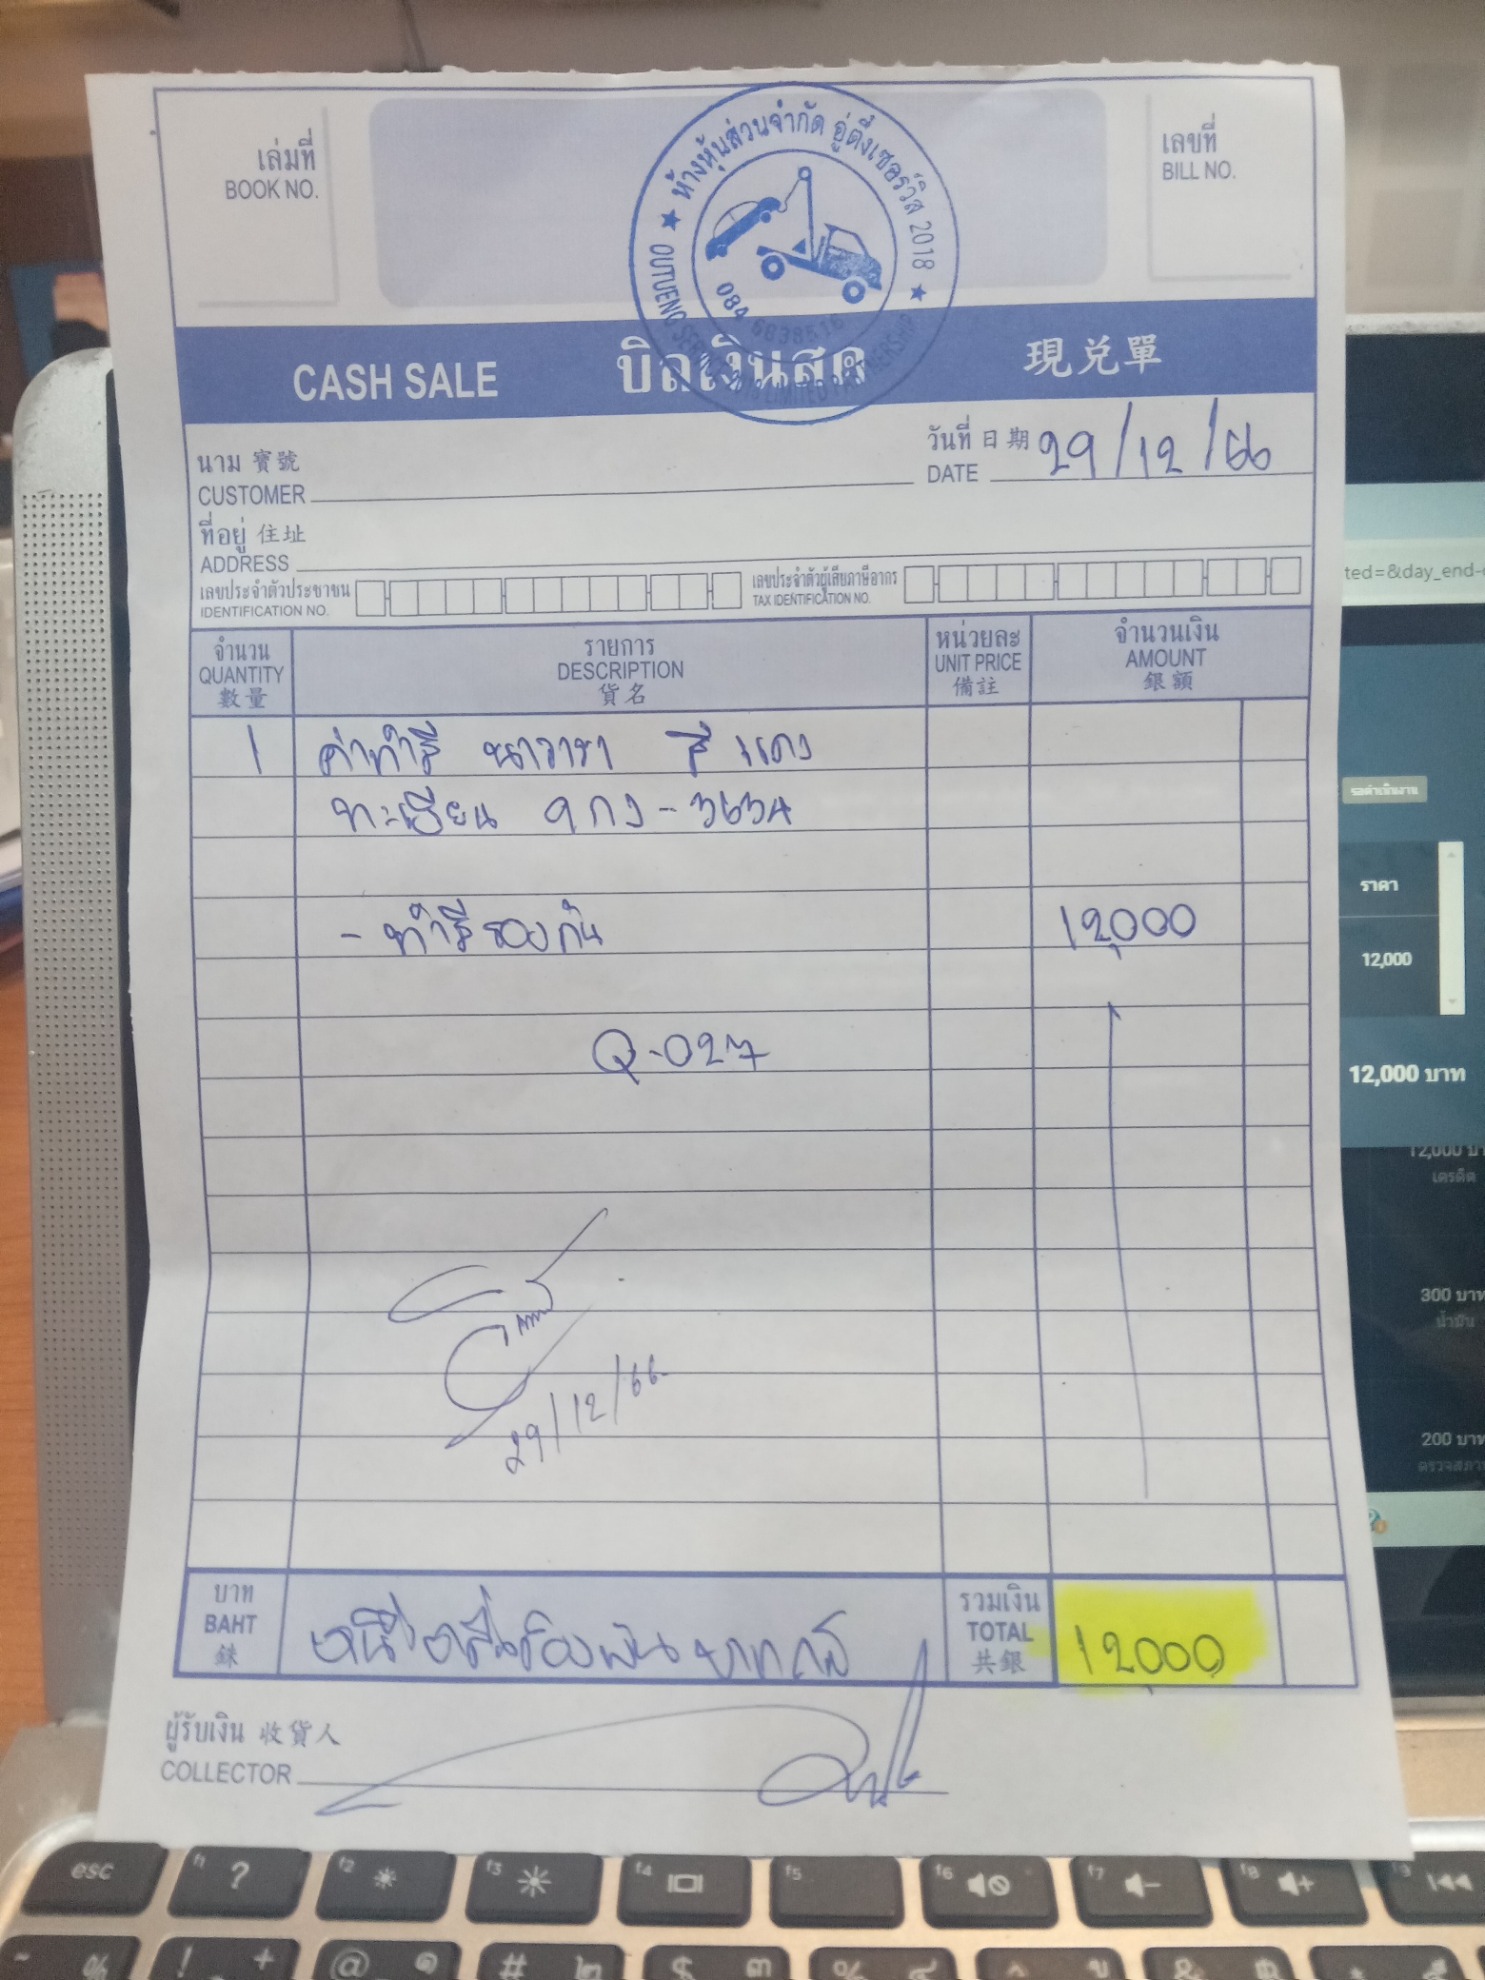 เล่มที่
BOOK NO.
ห้างหุ้นส่วนจำกัด อู่ตึ๋งเซอร์วิส 2018
084 6638516
เลขที่
BILL NO.
CASH SALE บิลเงินสด 現兑單
วันที่ 日期 29/12/66
DATE
นาม 寶號
CUSTOMER
ที่อยู่ 住址
ADDRESS
เลขประจำตัวประชาชน
IDENTIFICATION NO.
เลขประจำตัวผู้เสียภาษีอากร
TAX IDENTIFICATION NO.
จำนวน
QUANTITY
數量
รายการ
DESCRIPTION
貨名
หน่วยละ
UNIT PRICE
備註
จำนวนเงิน
AMOUNT
銀額
1 ค่าทำสี นาวารา สีแดง
ทะเบียน 9กง-3634
- ทำสีรองกัน 12,000
Q-027
29/12/66
บาท
BAHT
銖
หนึ่งหมื่นสองพันบาทถ้วน
รวมเงิน
TOTAL
共銀
12,000
ผู้รับเงิน 收貨人
COLLECTOR
ted=&day_end-
รอดำเนินงาน
ราคา
12,000
12,000 บาท
เครดิต
300 บาท
น้ำมัน
200 บาท
esc
f1 ?
f2
f3
f4
f5
f6
f7
f8
f9